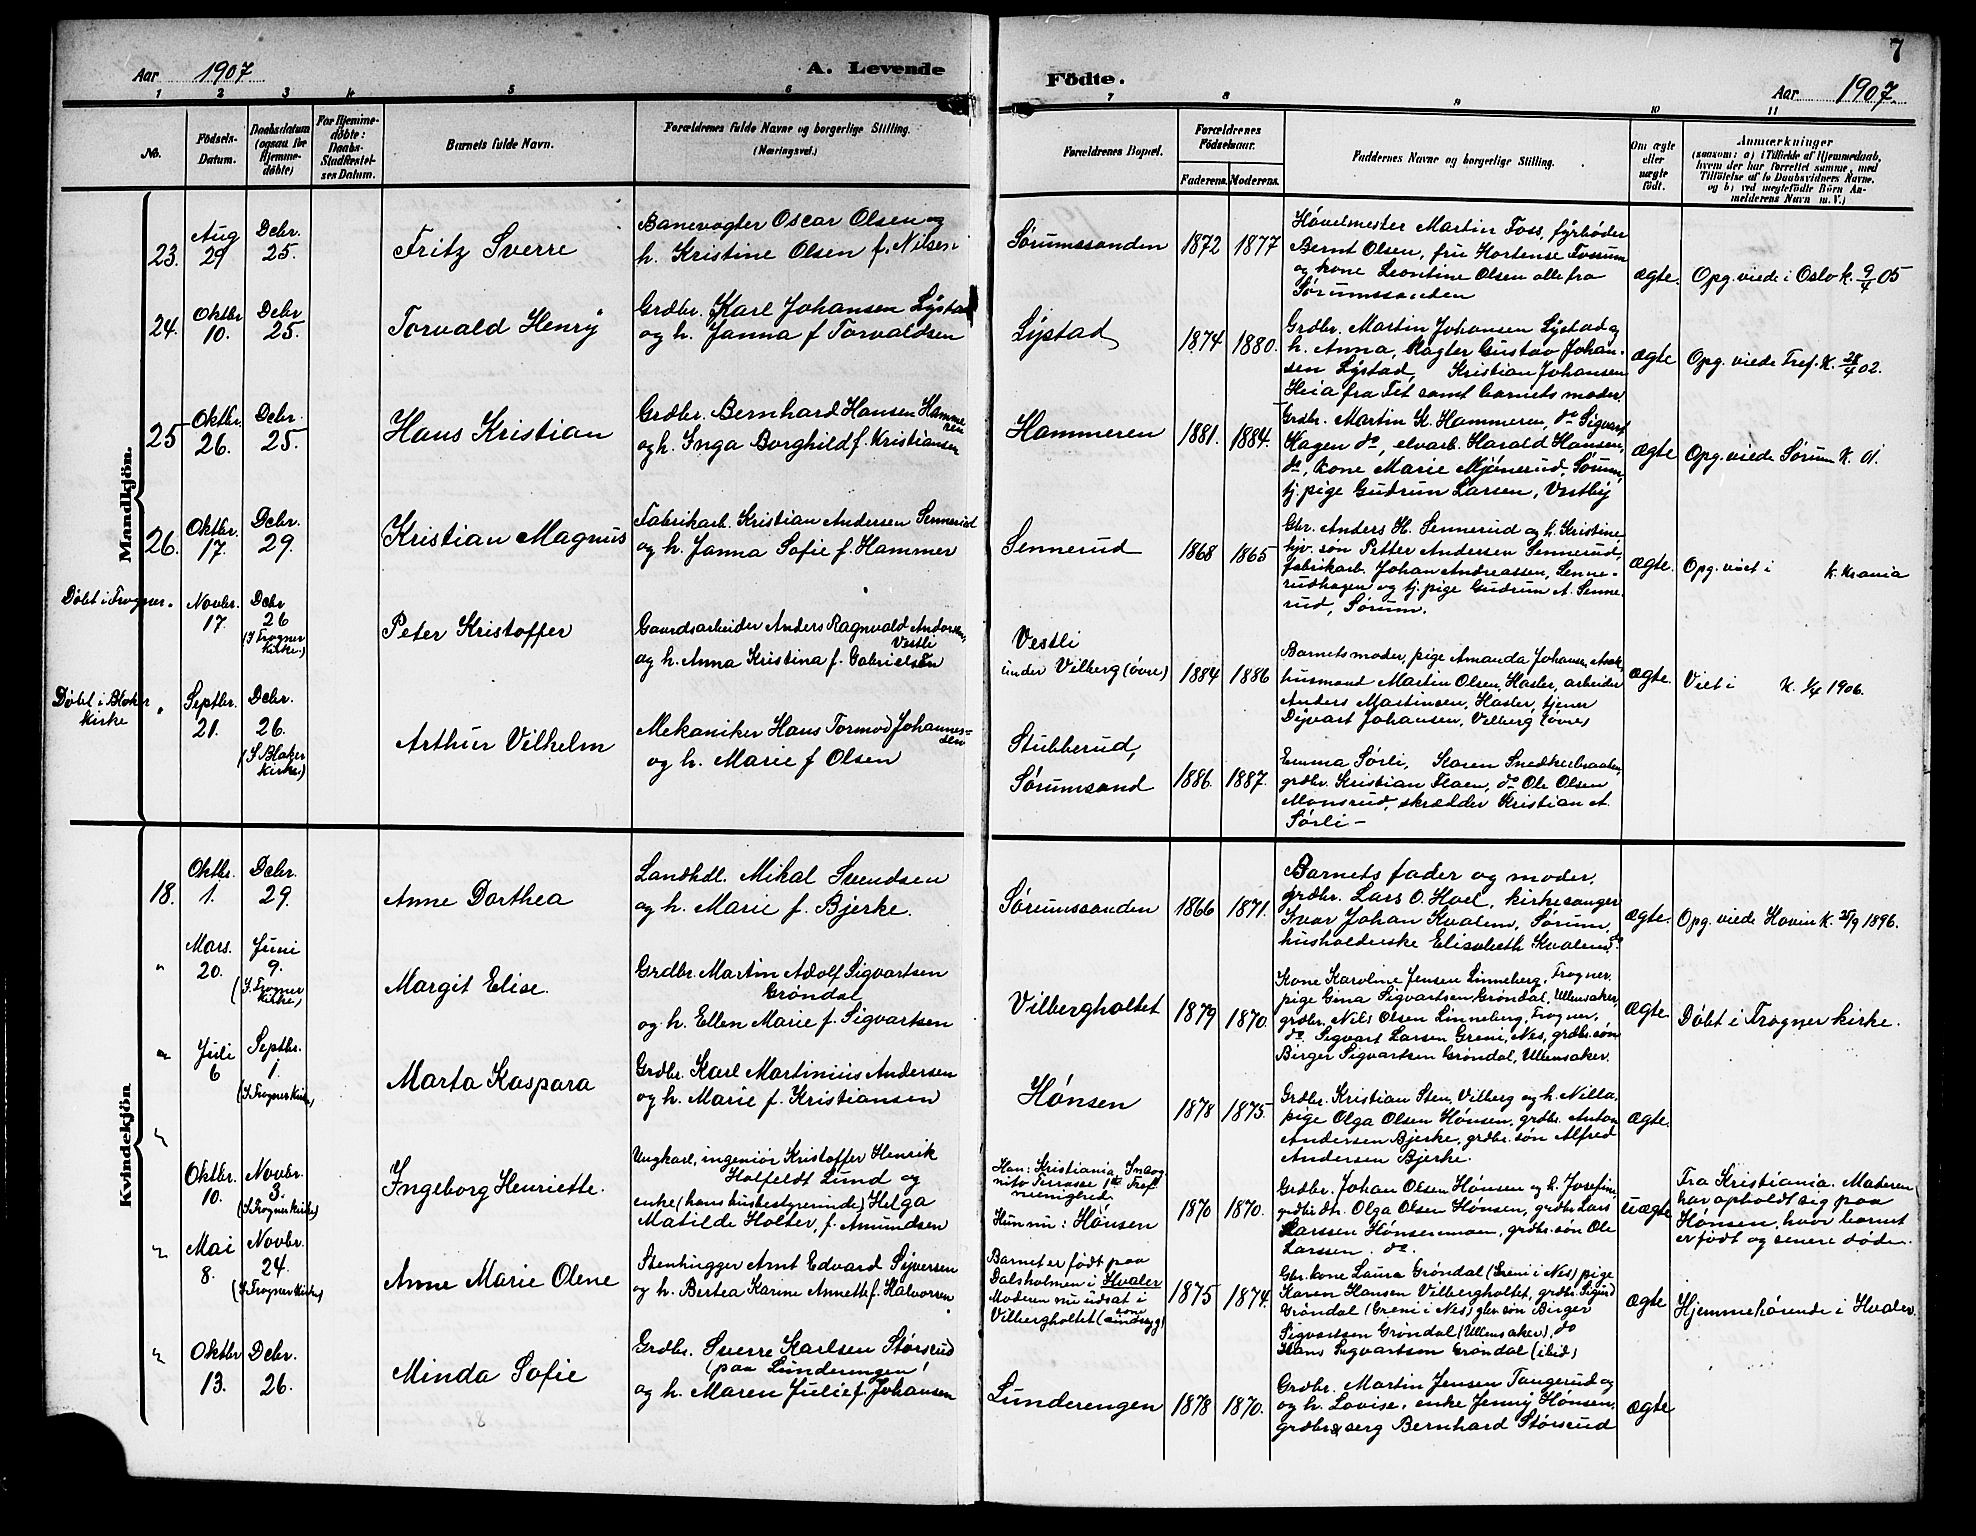 7
Aar 1907.
A. Levende
Fødte.
Aar 1907.
1 2 3 4 5 6 7 8 9 10 11
No.
Fødsels-
Datum.
Daabsdatum
(ogsaa for
Hjemme-
døbte)
For Hjemme-
døbte:
Daabs-
Stadfæstel-
ses Datum.
Barnets fulde Navn.
Forældrenes fulde Navne og borgerlige Stilling.
(Næringsvei.)
Forældrenes Bopæl.
Forældrenes
Fødselsaar.
Faderens. Moderens.
Faddernes Navne og borgerlige Stilling.
Om ægte
eller
uægte
født.
Anmærkninger
(saasom: a) i Tilfælde af Hjemmedaab,
hvem der har forrettet samme, med
Tilføielse af to Daabsvidners Navne.
og b) ved uægtefødte Børn An-
melderens Navn m. V.)
Mandkjøn.
23.
Aug
29
Debr.
25.
Fritz Sverre
Banevogter Oscar Olsen og
h. Kristine Olsen f. Nilsen
Sørumssanden
1872 1877
Høvelmester Martin Foss, fyrbøder
Bernt Olsen, fru Hortense Fossum
og kone Leontine Olsen alle fra
Sørumssanden
ægte.
Opg. viede i Oslo k. 9/4 05
24.
Oktbr
10.
Debr
25.
Torvald Henry
Grdbr. Karl Johansen Lystad
og h. Janna f Torvaldsen
Lystad
1874 1880.
Grdbr. Martin Johansen Lystad og
h. Anna, Gustav Johan-
sen Lystad, Kristian Johansen
Heia fra Fet samt barnets moder
ægte
Opg. viede Tref. K. 28/4 02.
25
Oktbr.
26.
Debr.
25.
Hans Kristian
Grdbr. Bernhard Hansen Hamme-
ren
og h. Inga Borghild f. Kristiansen
Hammeren
1881. 1884.
Grdbr. Martin K. Hammeren, do Sigvart
Hagen do, elvarb. Harald Hansen,
do, kone Marie Mjönerud, Sørum,
tj. pige Gudrun Larsen, Vestby
ægte
Opg. viede Sørum K. 01.
26.
Oktbr.
17.
Debr.
29.
Kristian Magnus
Fabrikarb. Kristian Andersen Sennerud
og h. Janna Sofie f. Hammer
Sennerud
1868 1865
Gbr. Anders H. Sennerud og h. Kristine
hjv. søn Petter Andersen Sennerud,
fabrikarb. Johan Andreassen, Senne-
rudhagen og tj. pige Gudrun A. Senne-
rud, Sørum.
ægte.
Opg. viet i k. Krania
Døbt i Frogner.
Novbr.
17.
Debr
26
(I Frogner
kirke.)
Peter Kristoffer
Gaardsarbeider Anders Ragnvald Andersen,
Vestli
og h. Anna Kristina f. Gabrielsen
Vestli
under Vilberg (øvre)
1884 1886
Barnets moder, pige Amanda Johansen,
husmand Martin Olsen, Hasler, arbeider
Anders Martinsen, Hasler, tjener
Johansen, Vilberg (øvre)
ægte.
Viet i K. 1/4 1906.
Døbt i Blaker
kirke
Septbr.
21.
Debr.
26.
(I Blaker
kirke.)
Arthur Vilhelm
Mekaniker Hans Tormod Johannes-
sen
og h. Marie f Olsen
Stubberud,
Sørumsand
1886. 1887.
Emma Sørli, Karen Snedkerbraaten,
grdbr. Kristian Flaen, do Ole Olsen
Monsrud, skrædder Kristian A.
Sørli –
Kvindekjøn
18.
Oktbr.
1.
Debr.
29.
Anne Dorthea
Landhdl. Mikal Svendsen
og h. Marie f. Bjerke.
Sørumssanden
1866 1871.
Barnets fader og moder,
grdbr. Lars O. Hoel, kirkesanger
Ivar Johan Kvalem, Sørum,
husholderske Elisabeth Kvalem, do
ægte.
Opg. viede Hovin K. 25/9 1896.
"
Mars.
20.
Juni
9.
(I Frogner
kirke)
Margit Elise.
Grdbr. Martin Adolf Sigvartsen
Grøndal
og h. Ellen Marie f. Sigvartsen
Vilbergholtet
1879 1870.
Kone Karoline Jensen Linneberg, Frogner,
pige Gina Sigvartsen Grøndal, Ullensaker,
grdbr. Nils Olsen Linneberg, Frogner,
do Sigvart Larsen Greni, Nes, grdbr. søn
Birger Sigvartsen Grøndal, Ullensaker.
ægte
Døbt i Frogner kirke.
"
Juli
6
Septbr.
1.
(I Frogner kirke)
Marta Kaspara
Grdbr. Karl Martinius Andersen
og h. Marie f. Kristiansen
Hønsen
1878 1875.
Grdbr. Kristian Sten, Vilberg og h. Nilla,
pige Olga Olsen Hønsen, grdbr. Anton
Andersen Bjerke, grdbr. søn Alfred
Andersen Bjerke.
ægte.
"
Oktbr.
10.
Novbr.
3.
(I Frogner kirke)
Ingeborg Henriette.
Ungkarl, ingeniør Kristoffer Henrik
Holfeldt Lund og
enke (hans husbestyrerinde) Helga
Matilde Holter, f. Amundsen
Han: Kristiania, Inkog-
nito Terrasse 1 Tref.
menighed.
Hun nu: Hønsen
1870 1870.
Grdbr. Johan Olsen Hønsen og h. Josefine,
grdbr. dtr. Olga Olsen Hønsen, grdbr. Lars
Larssen Hønsenmoen, grdbr. søn Ole
Larssen do.
uægte
Fra Kristiania. Moderen
har opholdt sig paa
Hønsen, hvor barnet
er født og senere døde.
"
Mai
8.
Novbr.
24.
(I Frogner kirke)
Anne Marie Olene
Stenhugger Arnt Edvard Syversen
og h. Bertea Karine Annette f. Halvorsen
Barnet er født paa
Dalsholmen i Hvaler
Moderen nu udsat i
Vilbergholtet (som sindssyg)
1875 1874.
Gbr. kone Laura Grøndal (Greni i Nes) pige
Karen Hansen Vilbergholtet, grdbr. Sigurd
Grøndal (Greni i Nes) gbr. søn Birger
Sigvartsen Grøndal (Ullensaker), do
Hans Sigvartsen Grøndal (ibid)
ægte
Hjemmehørende i Hvaler.
"
Oktbr
13.
Debr.
26.
Minda Sofie
Grdbr. Sverre Karlsen Størsrud
(paa Lunderengen)
og h. Maren Julie f. Johansen
Lunderengen
1878 1870.
Grdbr. Martin Jensen Tangerud og
og h. Lovise, enke Jenny Hønsen,
grdbr. & serg Bernhard Størsrud
ægte